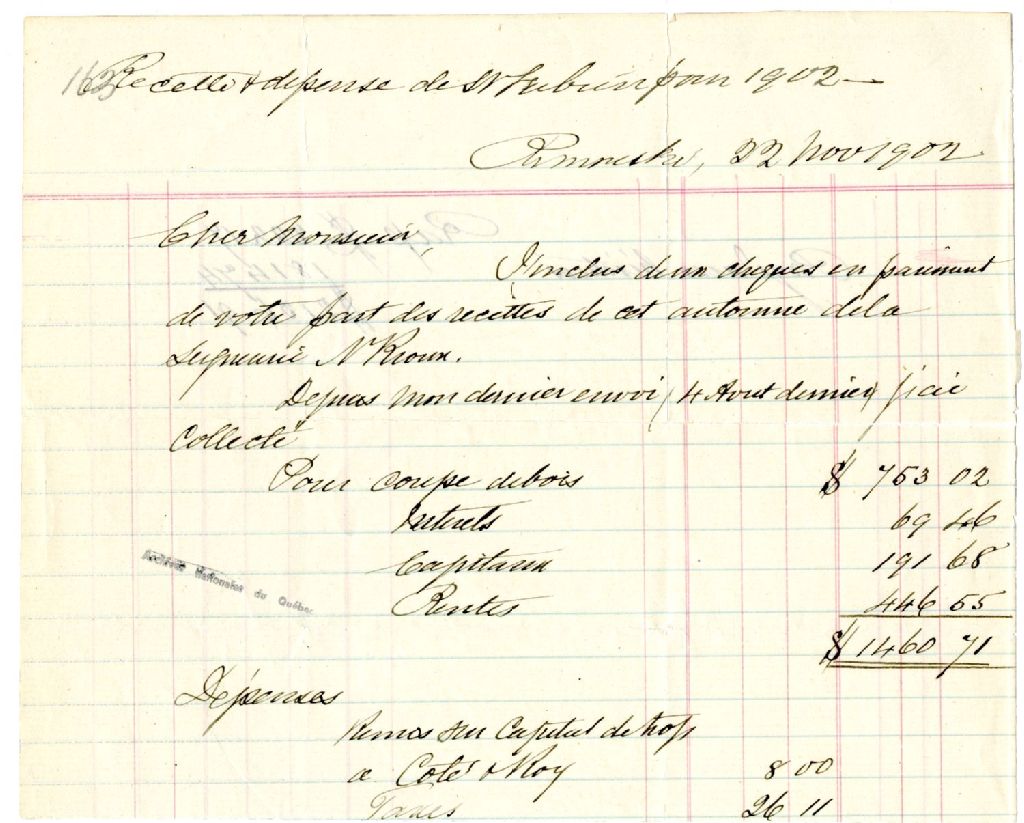 163
Recette & dépense de St Fabien pour 1902 —
Rimouski, 22 Nov 1902
Cher Monsieur,
J'inclus deux cheques en paiement
de votre part des recettes de cet automne de la
Seigneurie N. Rioux.
Depuis mon dernier envoi (4 Aout dernier) j'ai
Collecté
Pour coupe de bois $ 753 02
Interets 69 46
Capitaux 191 68
Rentes 446 55
$ 1460 71
Archives Nationales du Québec
Dépenses
Remis sur Capital de trop
a Coté & Roy 8 00
Taxes 26 11